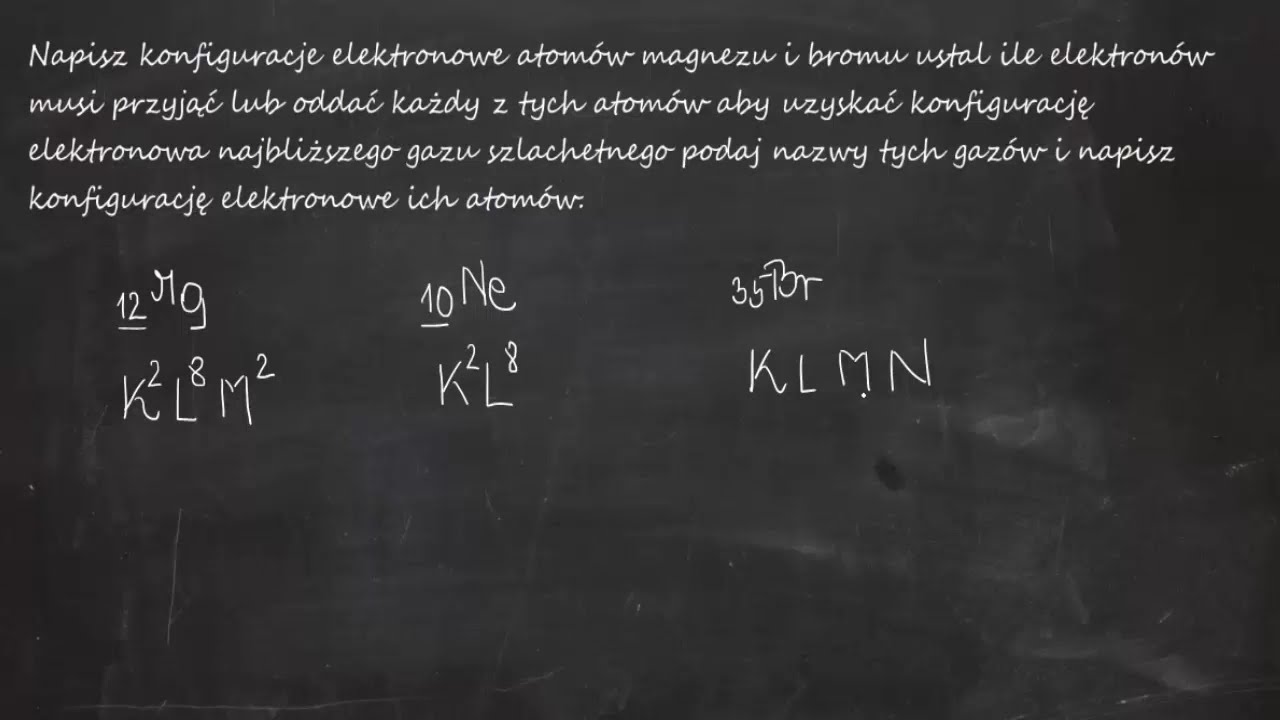 Napisz konfiguracje elektronowe atomów magnezu i bromu ustal ile elektronów
musi przyjąć lub oddać każdy z tych atomów aby uzyskać konfigurację
elektronowa najbliższego gazu szlachetnego podaj nazwy tych gazów i napisz
konfigurację elektronowe ich atomów.
₁₂Mg ₁₀Ne ₃₅Br
K²L⁸M² K²L⁸ K L M N